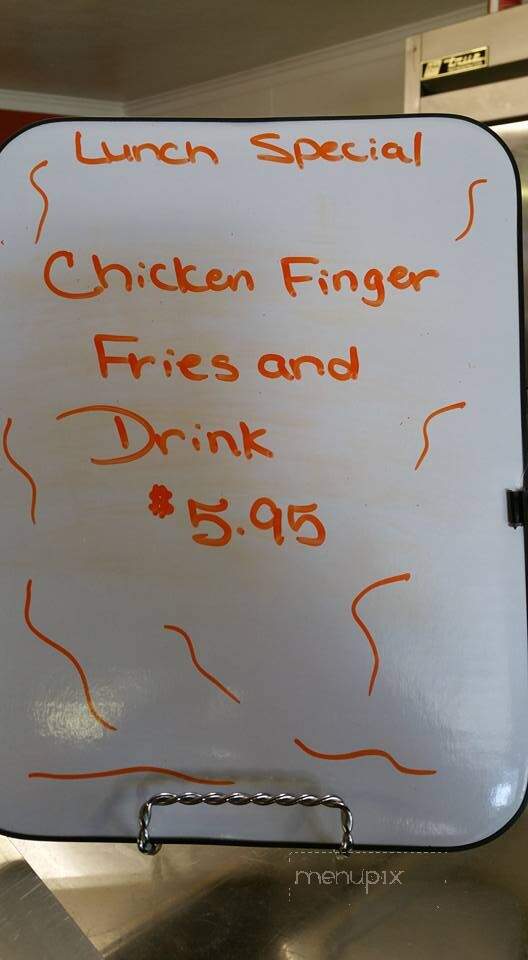 true
Lunch Special
Chicken Finger
Fries and
Drink
$5.95
menupix